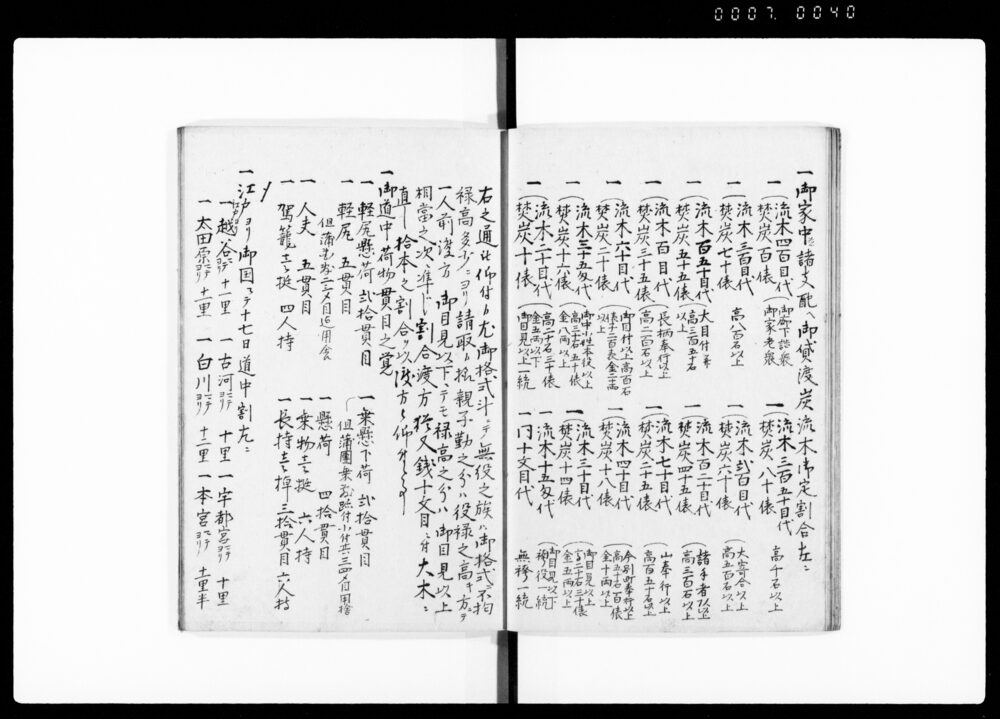 0007. 0040
一御家中並諸支配ヘ御貸渡炭流木御定割合左ニ
一 流木四百目代 焚炭百俵 御廊下詰衆 御家老衆
一 流木三百五十目代 焚炭八十俵 高千石以上
一 流木三百目代 焚炭七十俵 高八百石以上
一 流木弐百目代 焚炭六十俵 大寄合以上 高五百石以上
一 流木百五十目代 焚炭五十五俵 大目付 高三百五十石以上
一 流木百二十目代 焚炭四十五俵 諸手者頭以上 高三百石以上
一 流木百目代 焚炭三十五俵 長柄奉行以上 高二百石以上
一 流木七十目代 焚炭二十五俵 山奉行以上 高百五十石以上
一 流木六十目代 焚炭二十俵 御目付以上高百石 俵子二百俵金二十両以上
一 流木四十目代 焚炭十八俵 今別町奉行以上 高五十石百俵 金十両以上
一 流木三十五匁代 焚炭十六俵 御中小性本役以上 高三十石五十俵 金八両以上
一 流木三十目代 焚炭十四俵 御目見以上 高二十石三十俵 金五両以上
一 流木二十目代 焚炭十俵 高二十石三十俵 金五両以下 御目見以上一統
一 流木十五匁代 御目見以下 袴役一統
一 同十文目代 無袴一統
右之通被仰付候尤御格式斗ニテ無役之族ハ御格式不拘
禄高多少ニヨリ請取候様親子勤之分ハ役禄之高キ方ニテ
一人前渡方 御目見以下ニテモ禄高之分ハ御目見以上
相當之次ニ準シ割合渡方 猶又銭十文目ニ付大木ニ
直し拾本之割合ヲ以渡方被仰付候事
一御道中荷物貫目之覚
一 軽尻懸荷 弐拾貫目
一 乗懸下荷 弐拾貫目
一 軽尻 五貫目
但蒲団 二三メ目迄用舎
但蒲團 跡付小付共三四メ目用捨
一 懸荷 四拾貫目
一 人夫 五貫目
一 乗物壱挺 六人持
一 駕籠壱挺 四人持
一 長持壱棹三拾貫目六人持
一江戸ヨリ御国マテ十七日道中割左ニ
一 江戸ヨリ越谷マテ 十一里
一 古河マテ 十里
一 宇都宮マテ 十里
一 太田原マテ 十一里
一 白川マテ 十二里
一 本宮マテ 十一里半